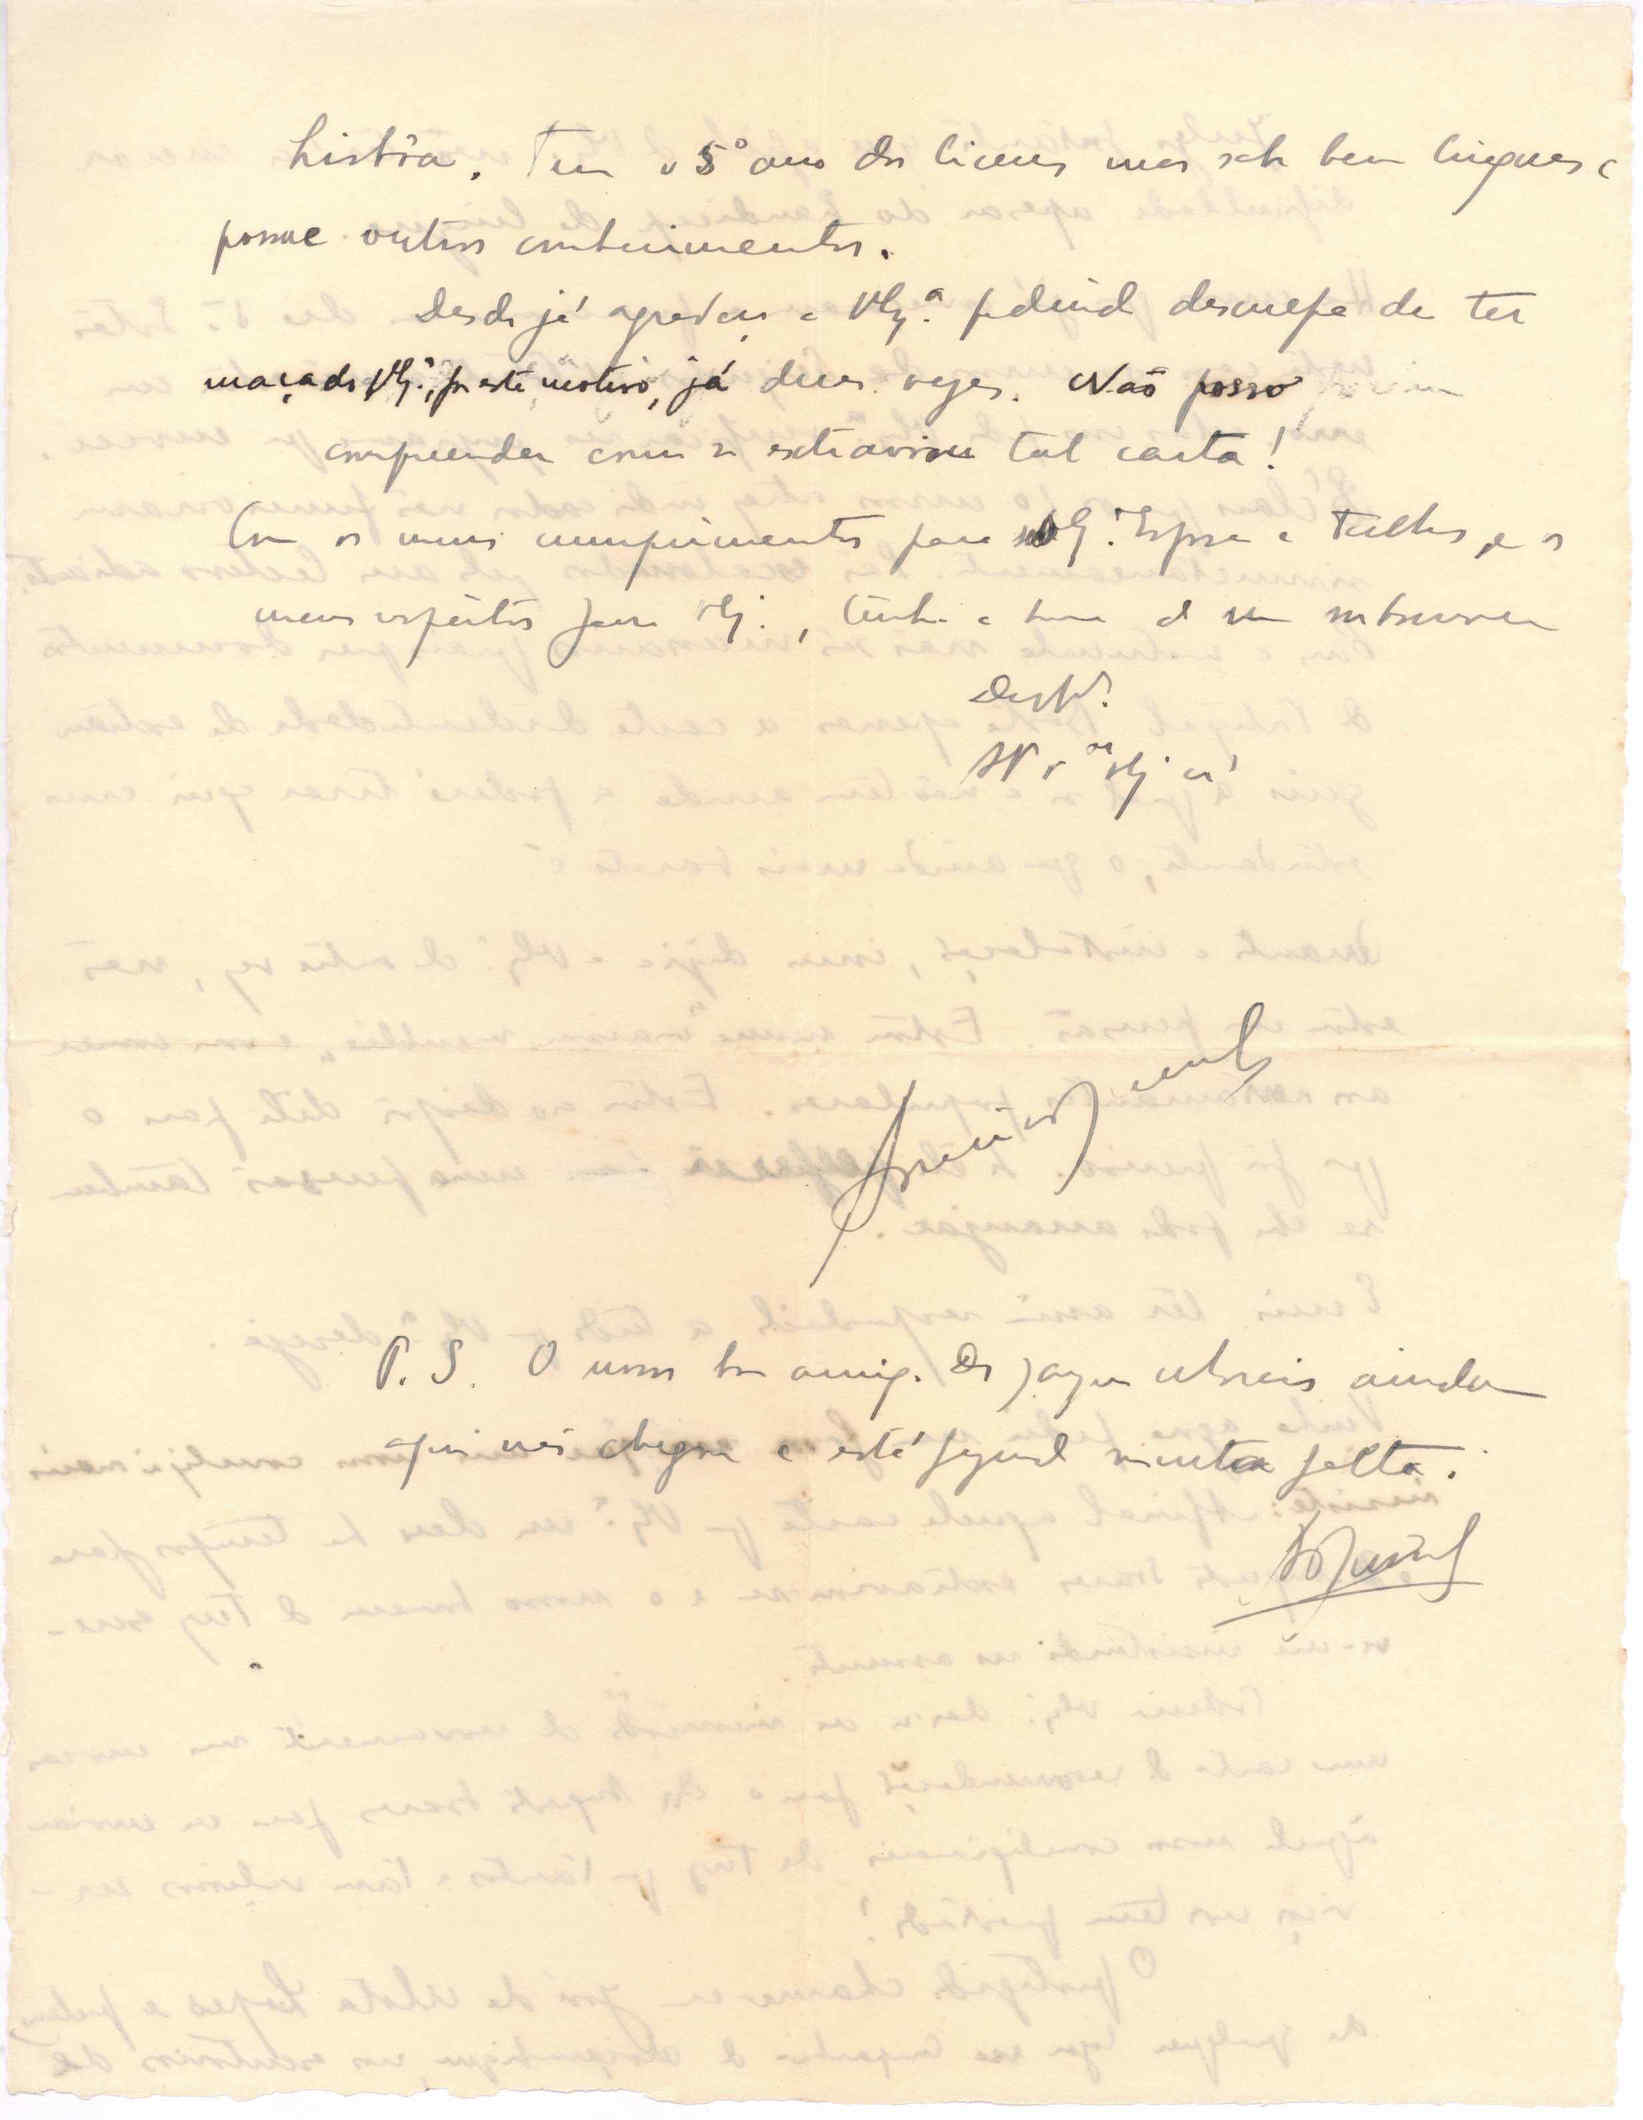 Lisbôa. Tem o 5º ano dos liceus mas sabe bem linguas e
possue outros conhecimentos.
Desde já agradeço a VEx.ª pedindo desculpa de ter
maçado VEx.ª, por este motivo, já duas vezes. Não posso
compreender como se extraviou tal carta!
Com os meus cumprimentos para Esposa e Filhos, e os
meus respeitos para VEx.ª, tenho a honra de me subscrever
De V. Ex.ª
P.S. O nosso bom amigo Dr Jayme Moraes ainda
aqui não chegou e está fazendo muita falta.